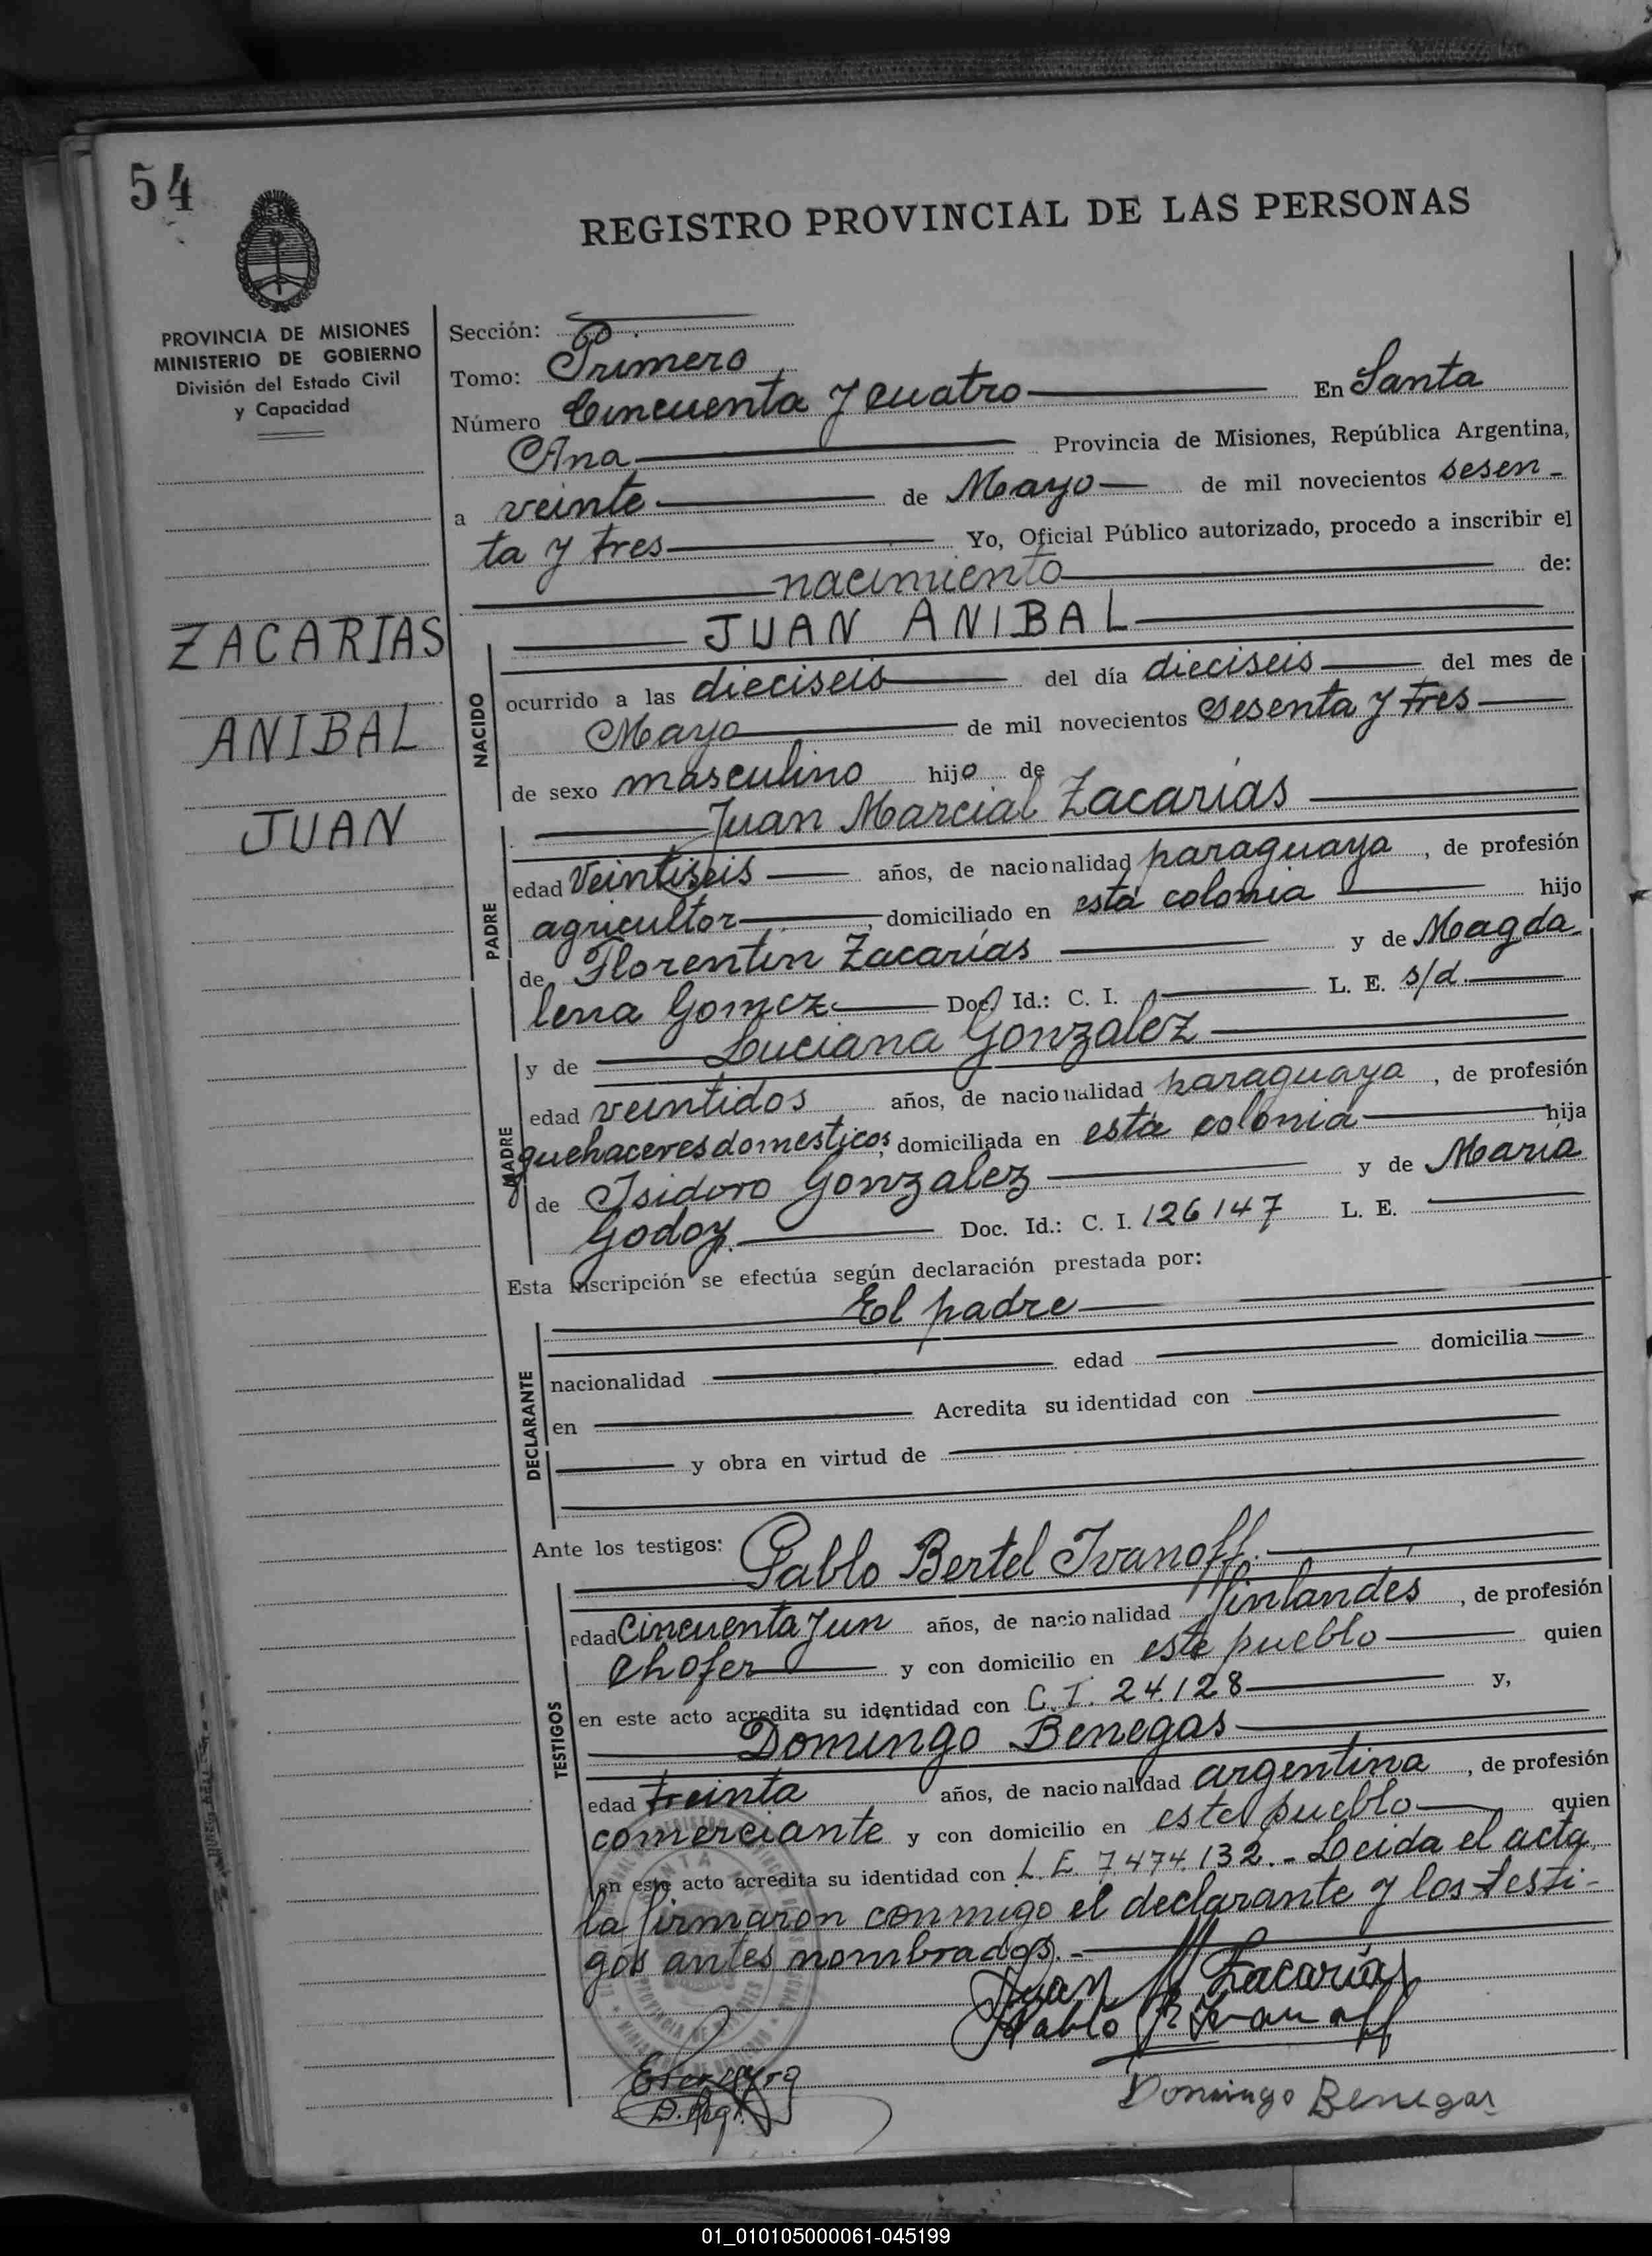 54
REGISTRO PROVINCIAL DE LAS PERSONAS
PROVINCIA DE MISIONES
MINISTERIO DE GOBIERNO
División del Estado Civil
y Capacidad
ZACARIAS
ANIBAL
JUAN
Sección:
Tomo: Primero
Número Cincuenta y cuatro En Santa
Ana Provincia de Misiones, República Argentina,
a veinte de Mayo de mil novecientos sesen-
ta y tres Yo, Oficial Público autorizado, procedo a inscribir el
nacimiento de:
JUAN ANIBAL
NACIDO
ocurrido a las dieciseis del día dieciseis del mes de
Mayo de mil novecientos sesenta y tres
de sexo masculino hijo de
Juan Marcial Zacarías
PADRE
edad Veintiseis años, de nacionalidad paraguaya, de profesión
agricultor, domiciliado en esta colonia hijo
de Florentin Zacarías y de Magda
lena Gomez Doc. Id.: C. I. L. E. s/d.
y de Luciana Gonzalez
MADRE
edad veintidos años, de nacionalidad paraguaya, de profesión
quehaceres domesticos, domiciliada en esta colonia hija
de Isidoro Gonzalez y de María
Godoy. Doc. Id.: C. I. 126147 L. E.
Esta inscripción se efectúa según declaración prestada por:
El padre
DECLARANTE
nacionalidad edad domicilia
en Acredita su identidad con
y obra en virtud de
Ante los testigos: Pablo Bertel Ivanoff.
TESTIGOS
edad cincuenta y un años, de nacionalidad finlandés, de profesión
chofer y con domicilio en este pueblo quien
en este acto acredita su identidad con C. I. 24.128 y,
Domingo Benegas
edad treinta años, de nacionalidad argentina, de profesión
comerciante y con domicilio en este pueblo quien
en este acto acredita su identidad con L. E. 7.474.132.- Leida el acta,
la firmaron conmigo el declarante y los testi-
gos antes nombrados.-
Juan M Zacarías
Pablo B Ivanoff
Domingo Benegas
01_010105000061-045199